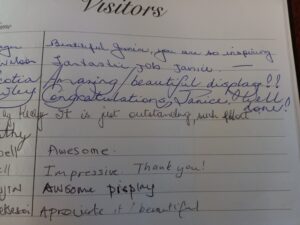 Visitors
Beautiful Janice, you are so inspiring
Fantastic Job Janice
Amazing / beautiful display!!
Congratulations, Janice, Well
done!
It is just outstanding, such effort
Awesome.
Impressive. Thank you!
AWesome Display
Aprouiate it! beautiful